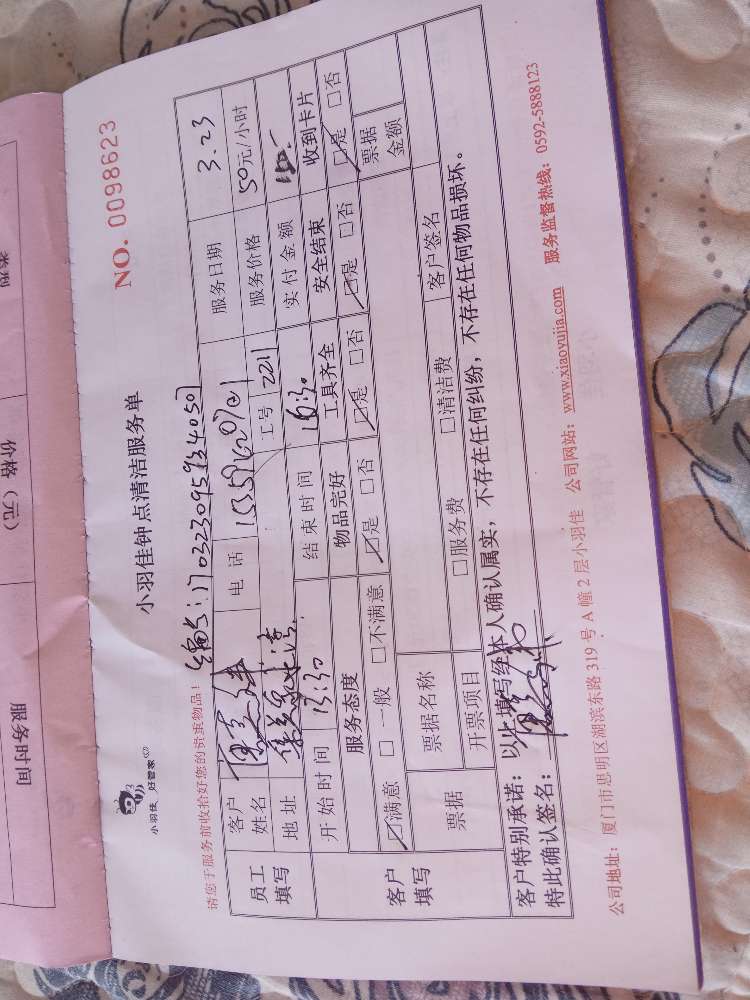 NO. 0098623
小羽佳钟点清洁服务单
小羽佳 好管家
请您于服务前收拾好您的贵重物品!
员工填写
客户姓名
电话
服务日期 3.23
地址
工号 2211
服务价格 50元/小时
开始时间 13:30
结束时间 16:30
实付金额 150.-
客户填写
服务态度 物品完好 工具齐全 安全结束 收到卡片
☑满意 □一般 □不满意 ☑是 □否 ☑是 □否 ☑是 □否 ☑是 □否
票据
票据名称
票据金额
开票项目 □服务费 □清洁费 客户签名
客户特别承诺: 以上填写经本人确认属实,不存在任何纠纷,不存在任何物品损坏。
特此确认签名:
公司地址: 厦门市思明区湖滨东路319号A幢2层小羽佳 公司网站: www.xiaoyujia.com 服务监督热线: 0592-5888123
类型
价格(元)
服务时间